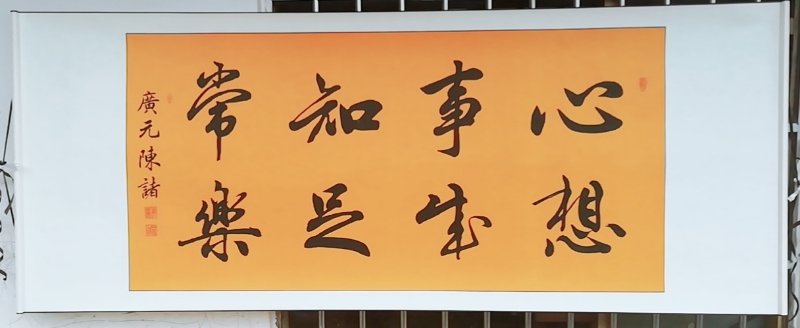 心想
事成
知足
常樂
廣元陳諸